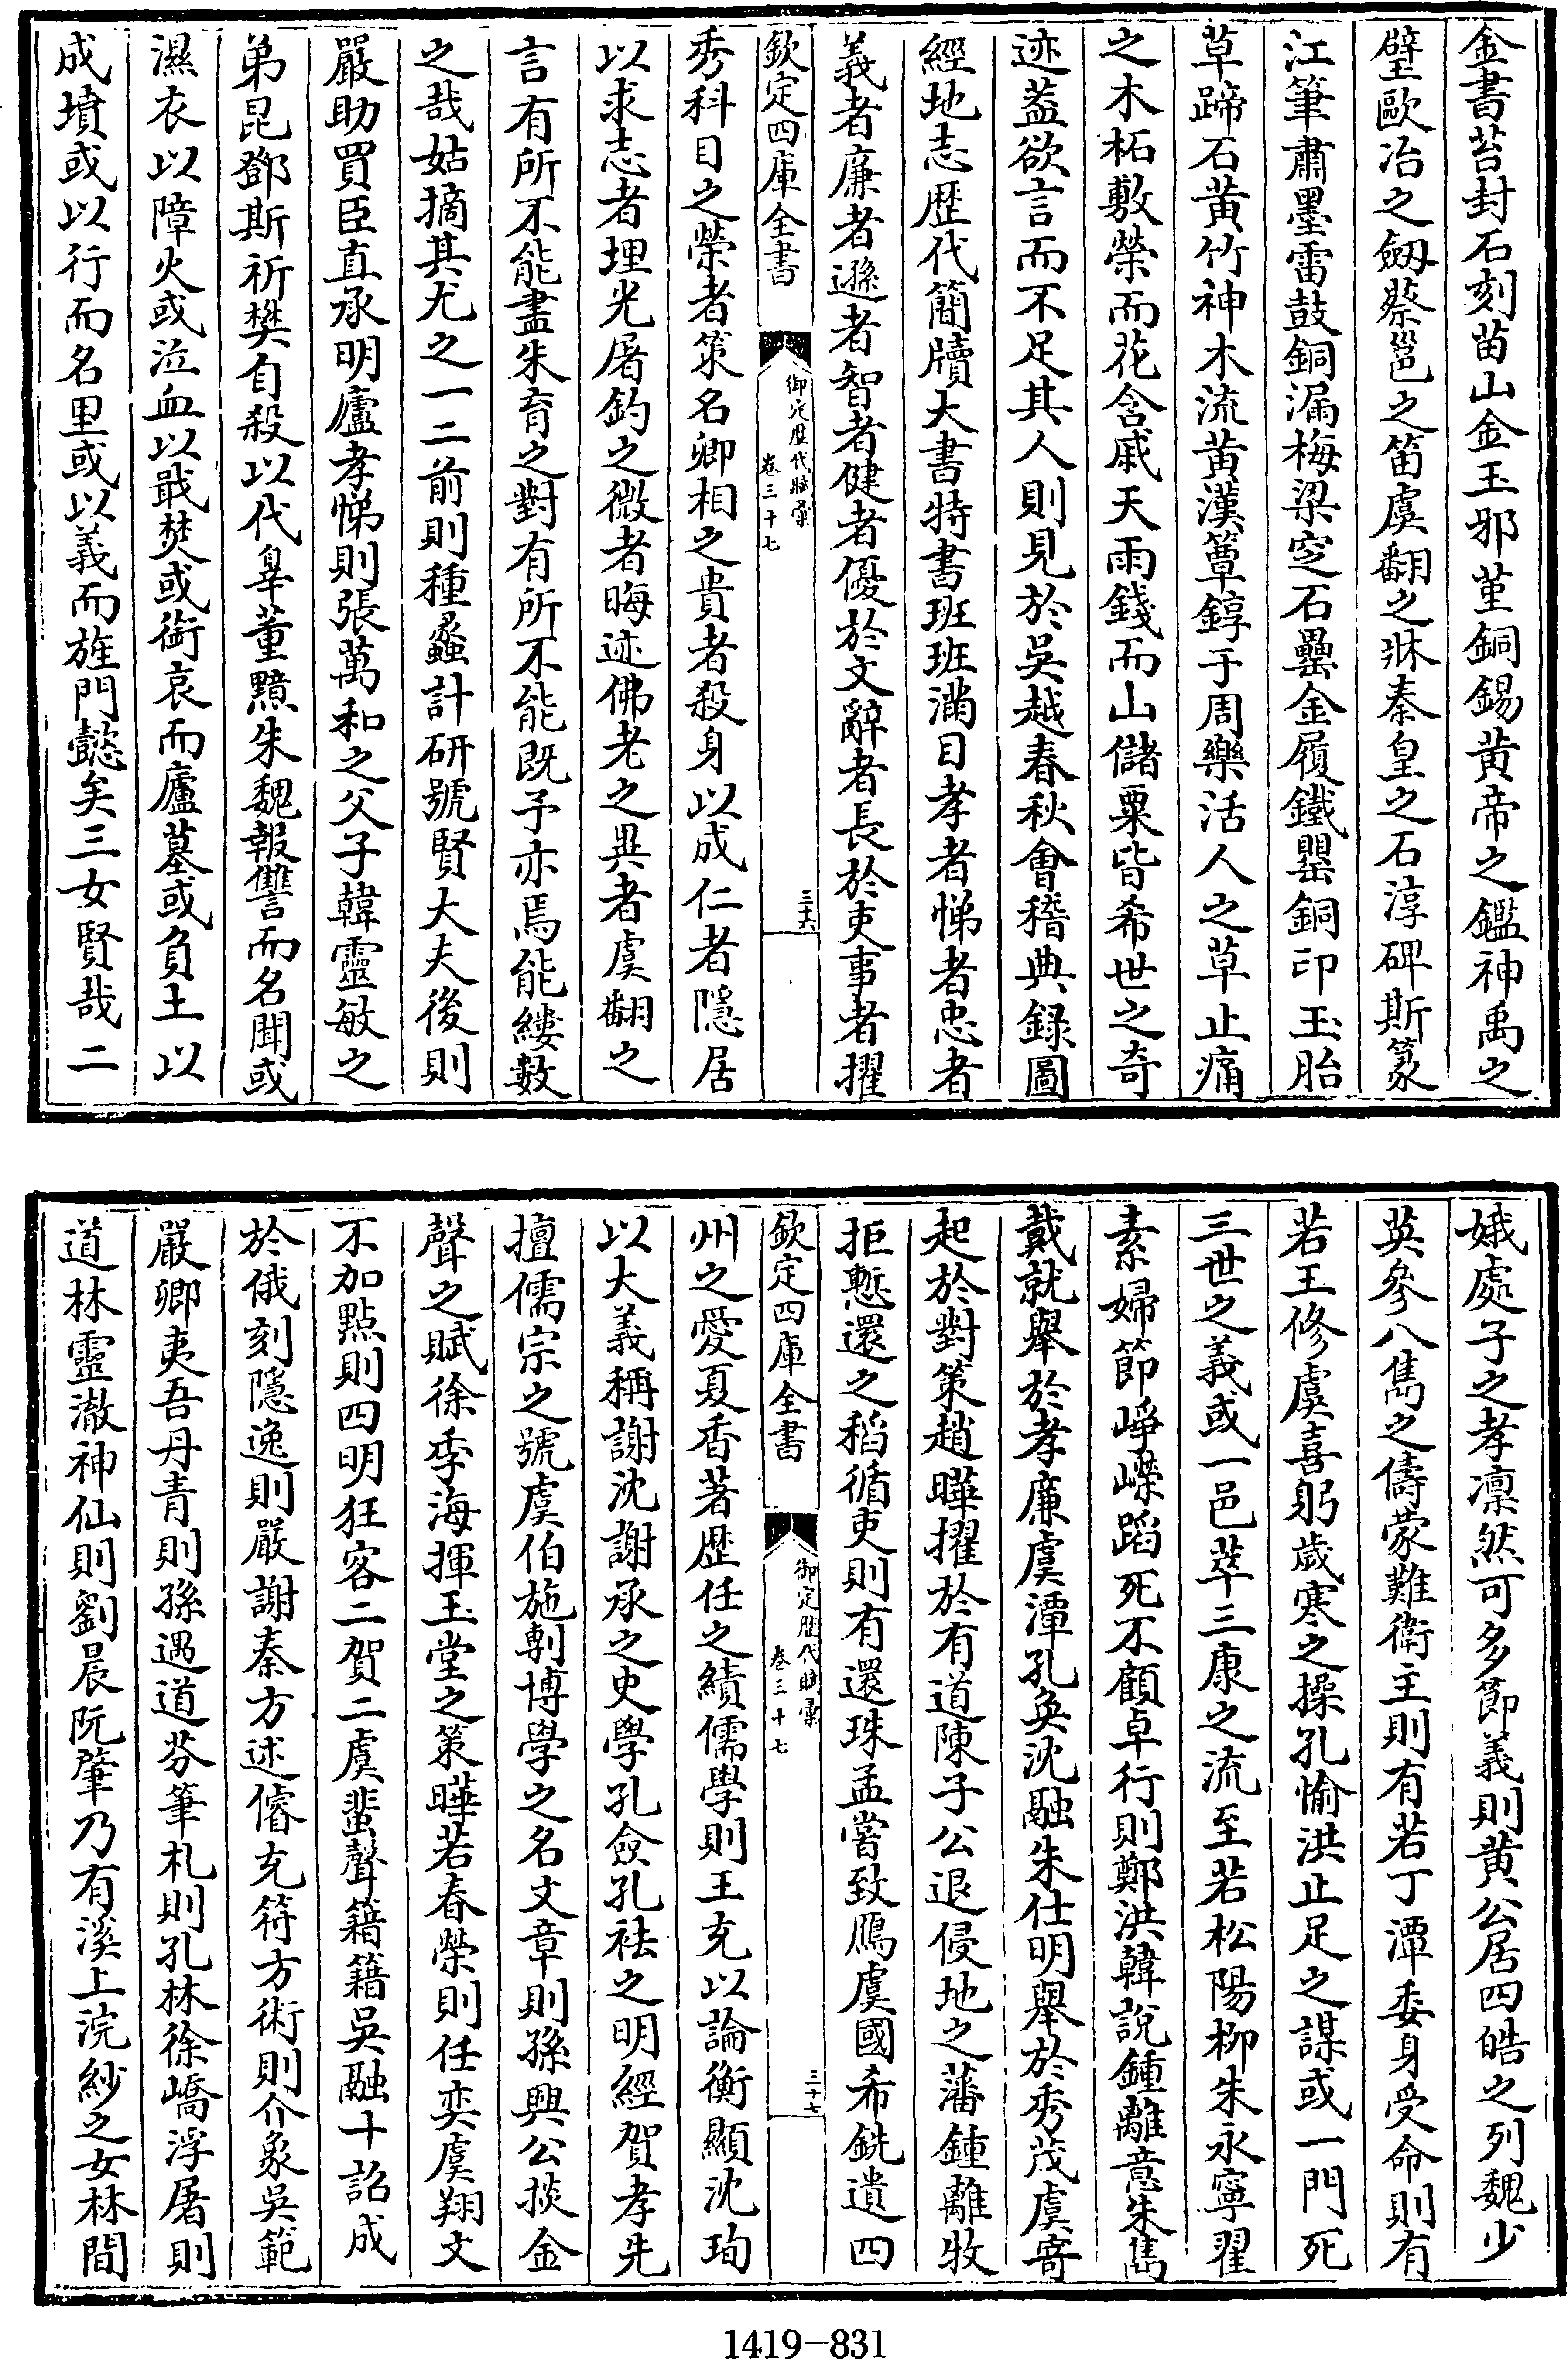 金書苔封石刻苗山金玉邪堇銅錫黄帝之鑑神禹之
璧歐冶之劒蔡邕之笛虞翻之牀秦皇之石淳碑斯篆
江筆肅墨雷鼓銅漏梅梁窆石罍金履鐵罌銅印玉胎
草蹄石黄竹神木流黄漢簟錞于周樂活人之草止痛
之木柘敷榮而花含戚天雨錢而山儲粟皆希世之奇
迹蓋欲言而不足其人則見於吳越春秋會稽典録圖
經地志歴代簡牘大書特書班班滿目孝者悌者忠者
義者亷者遜者智者健者優於文辭者長於吏事者擢
欽定四庫全書
御定歴代賦彙
卷三十七
三十六
秀科目之榮者策名卿相之貴者殺身以成仁者隱居
以求志者埋光屠釣之微者晦迹佛老之異者虞翻之
言有所不能盡朱育之對有所不能既予亦焉能縷數
之哉姑摘其尤之一二前則種蠡計研號賢大夫後則
嚴助買臣直承明廬孝悌則張萬和之父子韓靈敏之
弟昆鄧斯祈樊自殺以代辠董黯朱魏報讐而名聞或
濕衣以障火或泣血以戢焚或銜哀而廬墓或負土以
成墳或以行而名里或以義而旌門懿矣三女賢哉二
娥處子之孝凛然可多節義則黄公居四皓之列魏少
英參八雋之儔蒙難衛主則有若丁潭委身受命則有
若王修虞喜躬歲寒之操孔愉洪止足之謀或一門死
三世之義或一邑萃三康之流至若松陽柳朱永寧翟
素婦節崢嶸蹈死不顧卓行則鄭洪韓說鍾離意朱雋
戴就舉於孝亷虞潭孔奐沈融朱仕明舉於秀茂虞寄
起於對策趙曄擢於有道陳子公退侵地之藩鍾離牧
拒慙還之稻循吏則有還珠孟嘗致鴈虞國希銑遺四
欽定四庫全書
御定歴代賦彙
卷三十七
三十七
州之愛夏香著歴任之績儒學則王充以論衡顯沈珣
以大義稱謝沈謝承之史學孔僉孔袪之明經賀孝先
擅儒宗之號虞伯施剸博學之名文章則孫興公掞金
聲之賦徐季海揮玉堂之策曄若春榮則任奕虞翔文
不加點則四明狂客二賀二虞蜚聲籍籍吳融十詔成
於俄刻隱逸則嚴謝秦方述僐充符方術則介象吳範
嚴卿夷吾丹青則孫遇道芬筆札則孔林徐嶠浮屠則
道林靈澈神仙則劉晨阮肇乃有溪上浣紗之女林間
1419-831